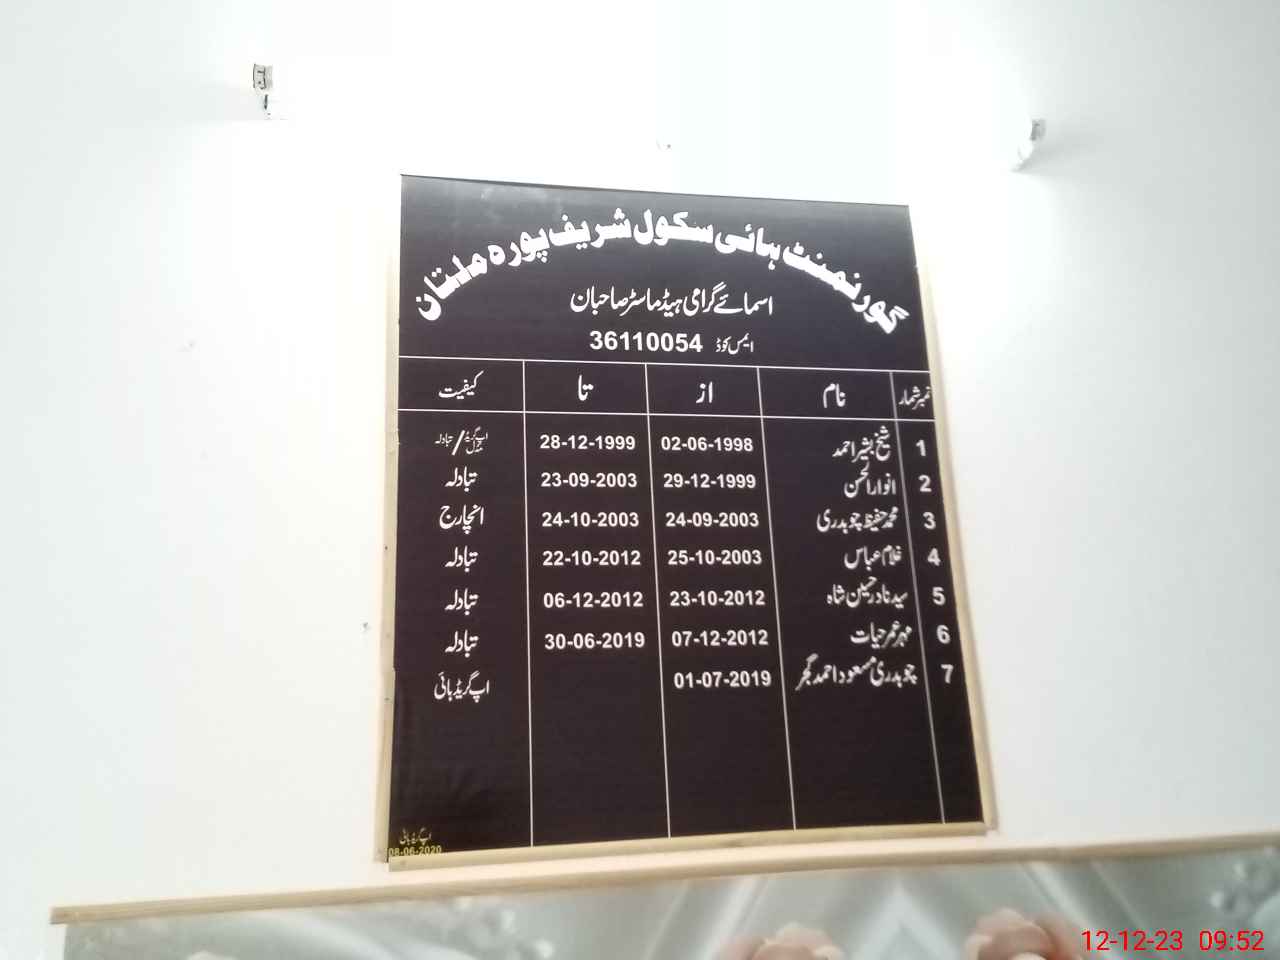 گورنمنٹ ہائی سکول شریف پورہ ملتان
اسمائے گرامی ہیڈ ماسٹر صاحبان
ایمس کوڈ 36110054
نمبر شمار نام از تا کیفیت
1 شیخ بشیر احمد 02-06-1998 28-12-1999 اپ گریڈ مڈل / تبادلہ
2 انوار الحسن 29-12-1999 23-09-2003 تبادلہ
3 محمد حفیظ چوہدری 24-09-2003 24-10-2003 انچارج
4 غلام عباس 25-10-2003 22-10-2012 تبادلہ
5 سید نادر حسین شاہ 23-10-2012 06-12-2012 تبادلہ
6 مہر عمر حیات 07-12-2012 30-06-2019 تبادلہ
7 چوہدری مسعود احمد گجر 01-07-2019 اپ گریڈ ہائی
اپ گریڈ ہائی
08-06-2020
12-12-23 09:52